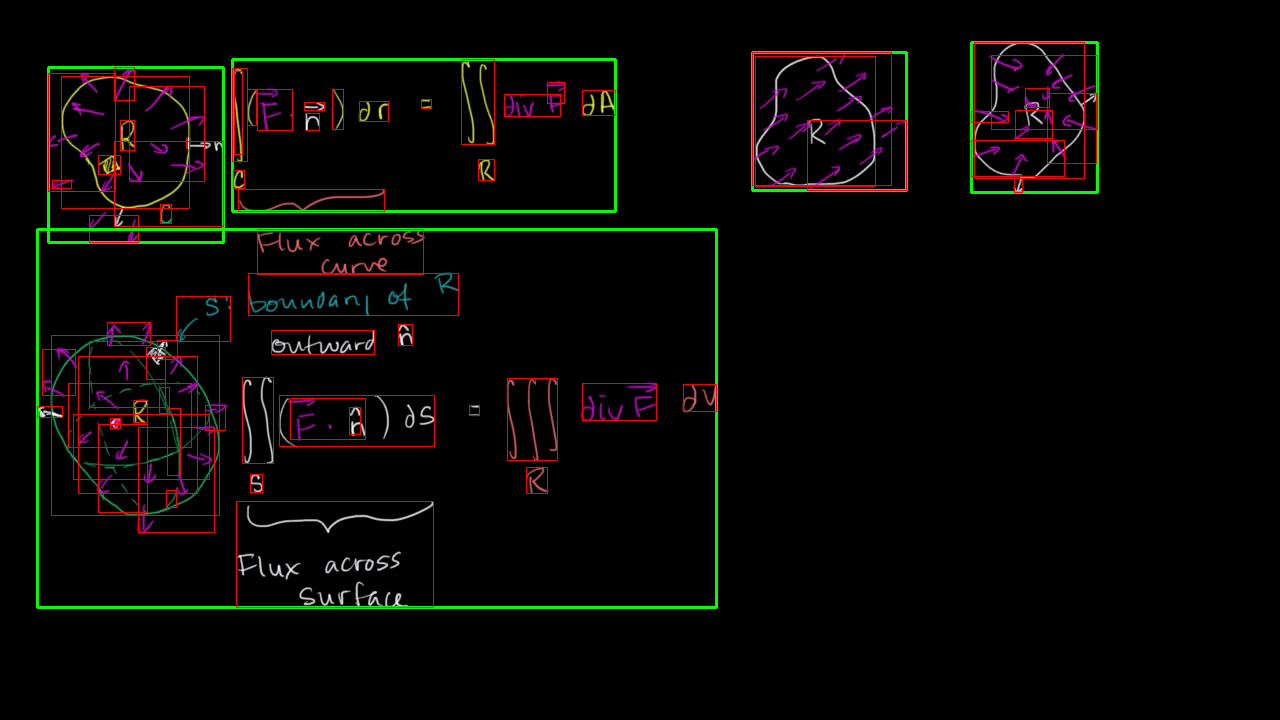 R
n
C
∫ ( F⃗ · n⃗ ) dr = ∬ div F⃗ dA
C
R
R
R
Flux across
curve
S: boundary of R
outward n̂
R
∬ ( F⃗ · n̂ ) dS = ∭ div F⃗ dV
S
R
Flux across
surface